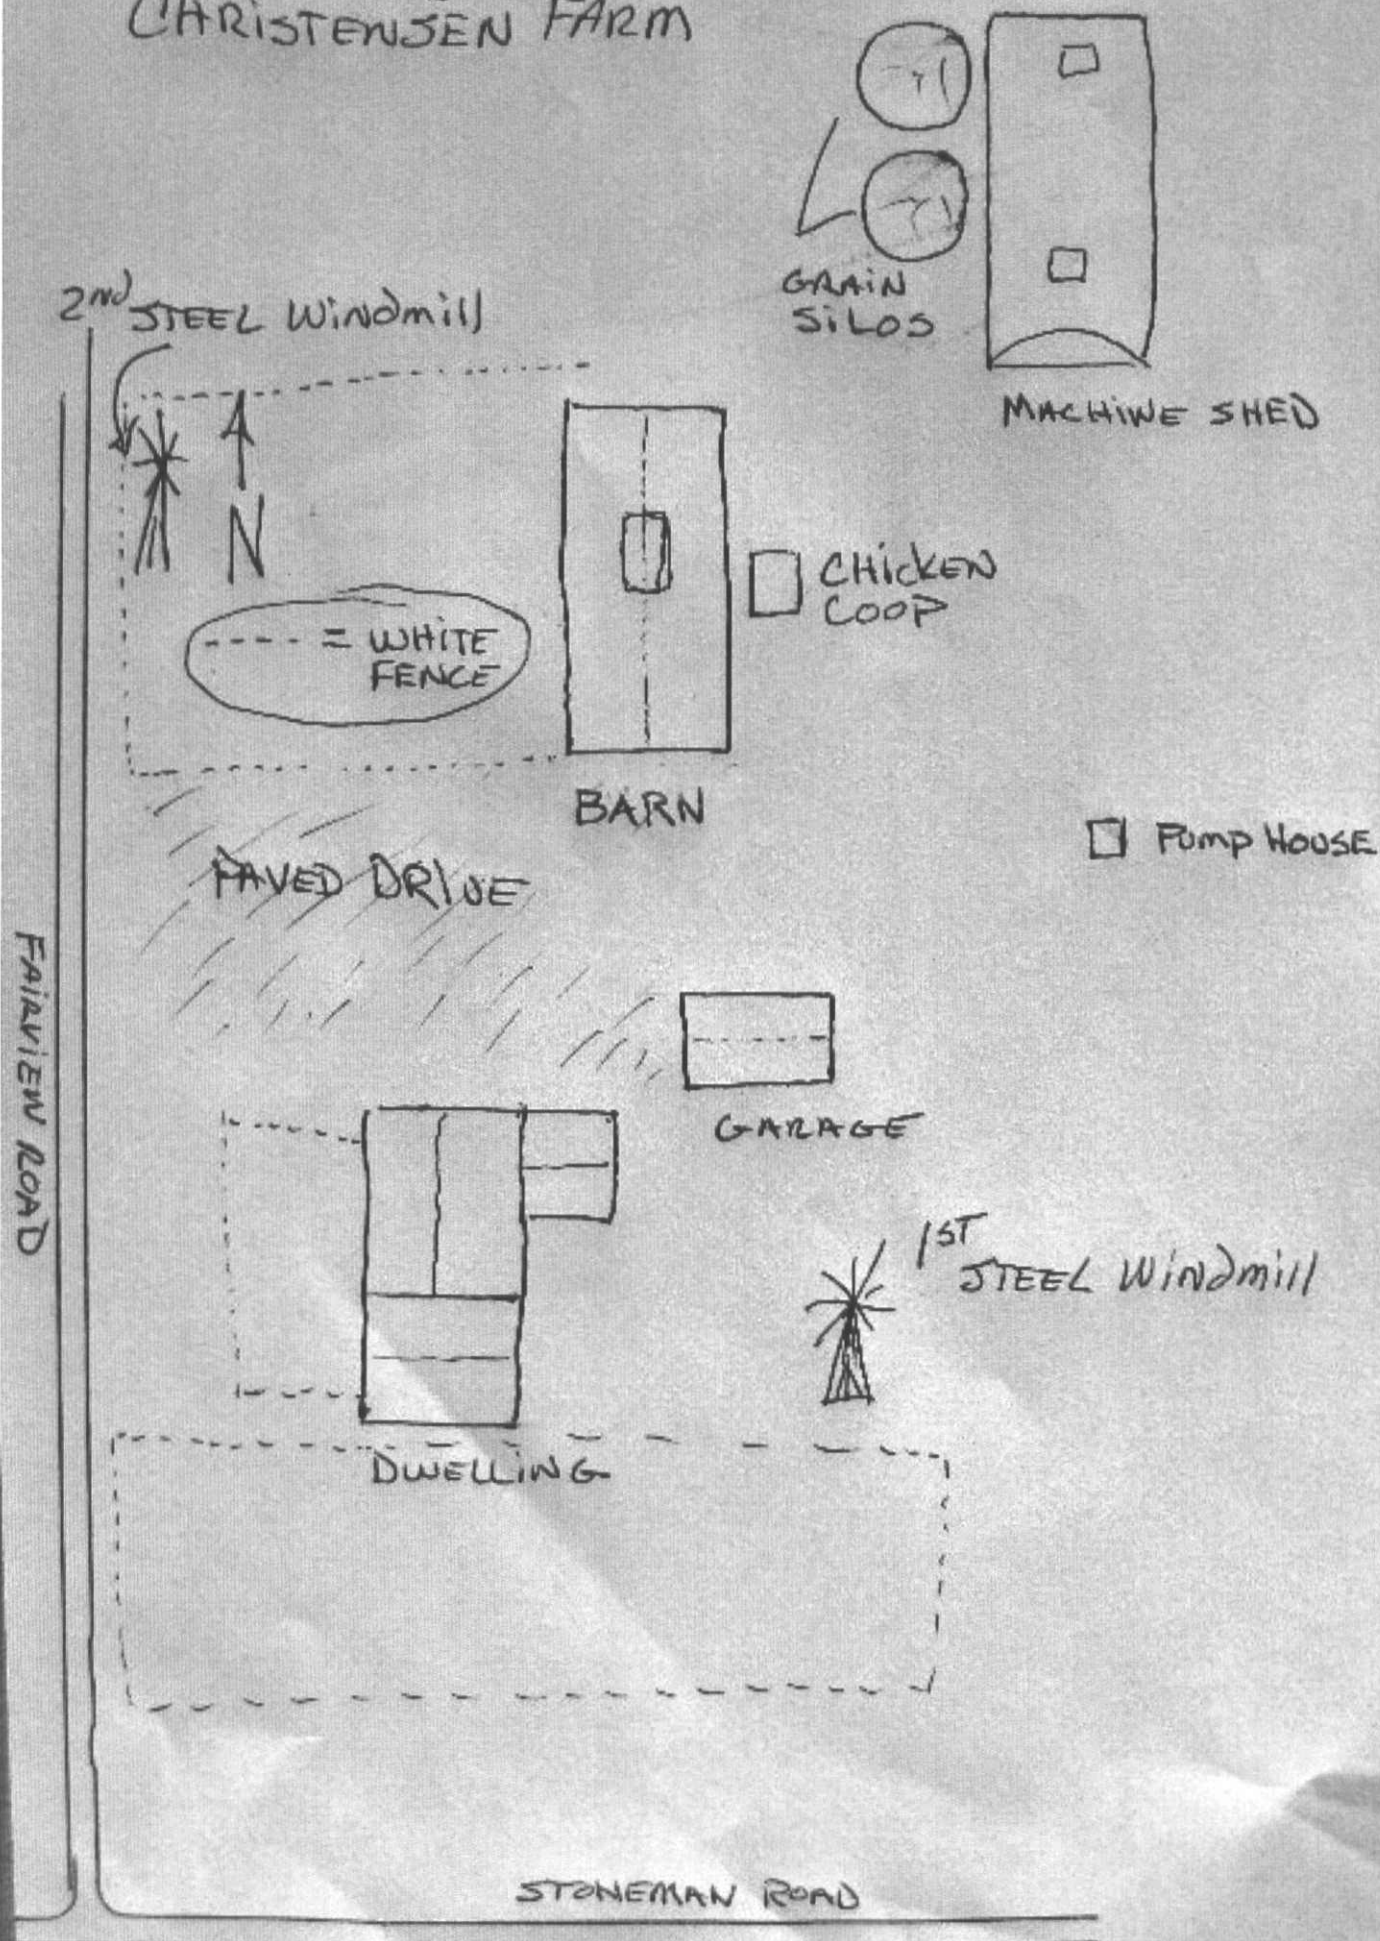 CHRISTENSEN FARM
GRAIN
SILOS
2nd STEEL Windmill
MACHINE SHED
N
CHICKEN
COOP
= WHITE
FENCE
BARN
PUMP HOUSE
PAVED DRIVE
FAIRVIEW ROAD
GARAGE
1ST
STEEL Windmill
DWELLING
STONEMAN ROAD